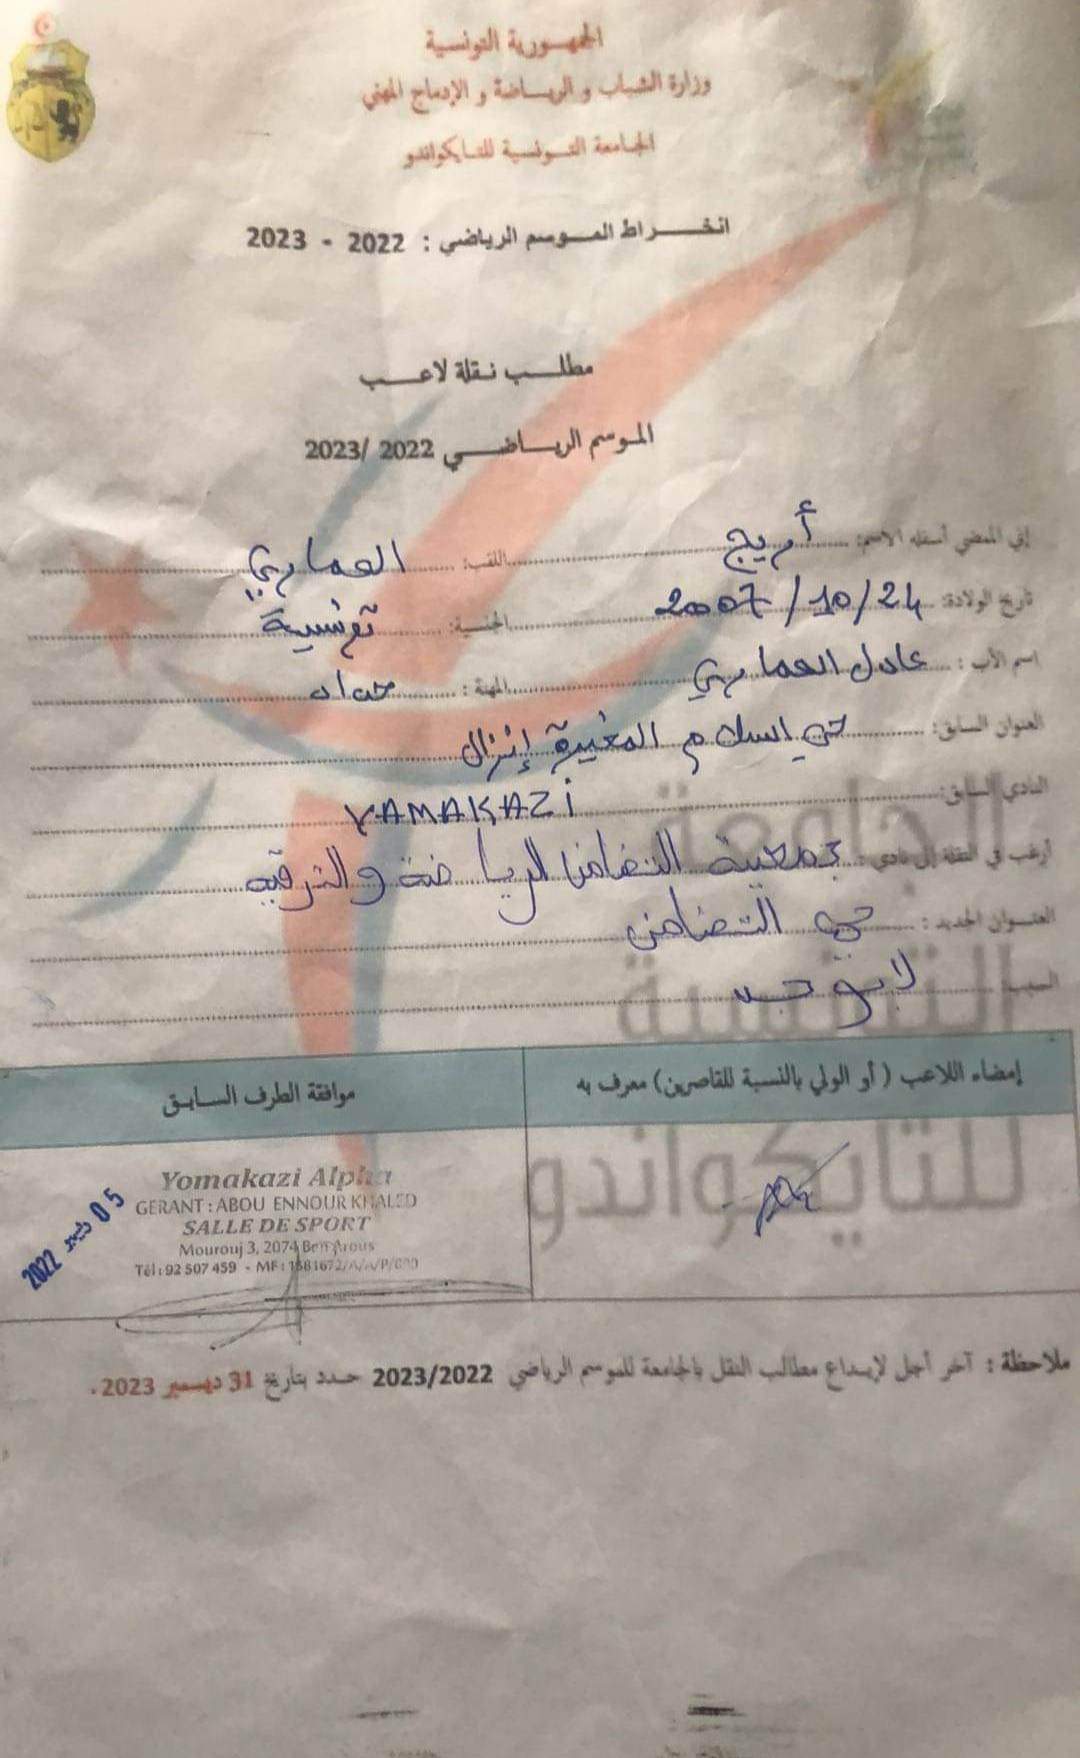 الجمهورية التونسية
وزارة الشباب و الرياضة و الإدماج المهني
الجامعة التونسية للتايكواندو
انخراط الموسم الرياضي : 2022 - 2023
مطلب نقلة لاعب
الموسم الرياضي 2022 /2023
إني الممضي أسفله الاسم: أريج اللقب: العماري
تاريخ الولادة: 2007/10/24 الجنسية: تونسية
اسم الأب : عادل العماري المهنة : حداد
العنوان السابق: حي السلام المغيرة إنزال
النادي السابق: YAMAKAZi
أرغب في النقلة إلى نادي : جمعية التضامن الرياضة والترفيه
العنوان الجديد : حي التضامن
السبب لا يوجد
إمضاء اللاعب ( أو الولي بالنسبة للقاصرين) معرف به
موافقة الطرف السابق
Yomakazi Alpha
GERANT : ABOU ENNOUR KHALED
SALLE DE SPORT
Mourouj 3, 2074 Ben Arous
Tél : 92 507 459 - MF :
05 ديسمبر 2022
ملاحظة : آخر أجل لإيداع مطالب النقل بالجامعة للموسم الرياضي 2023/2022 حدد بتاريخ 31 ديسمبر 2023.
الجامعة
التونسية
للتايكواندو